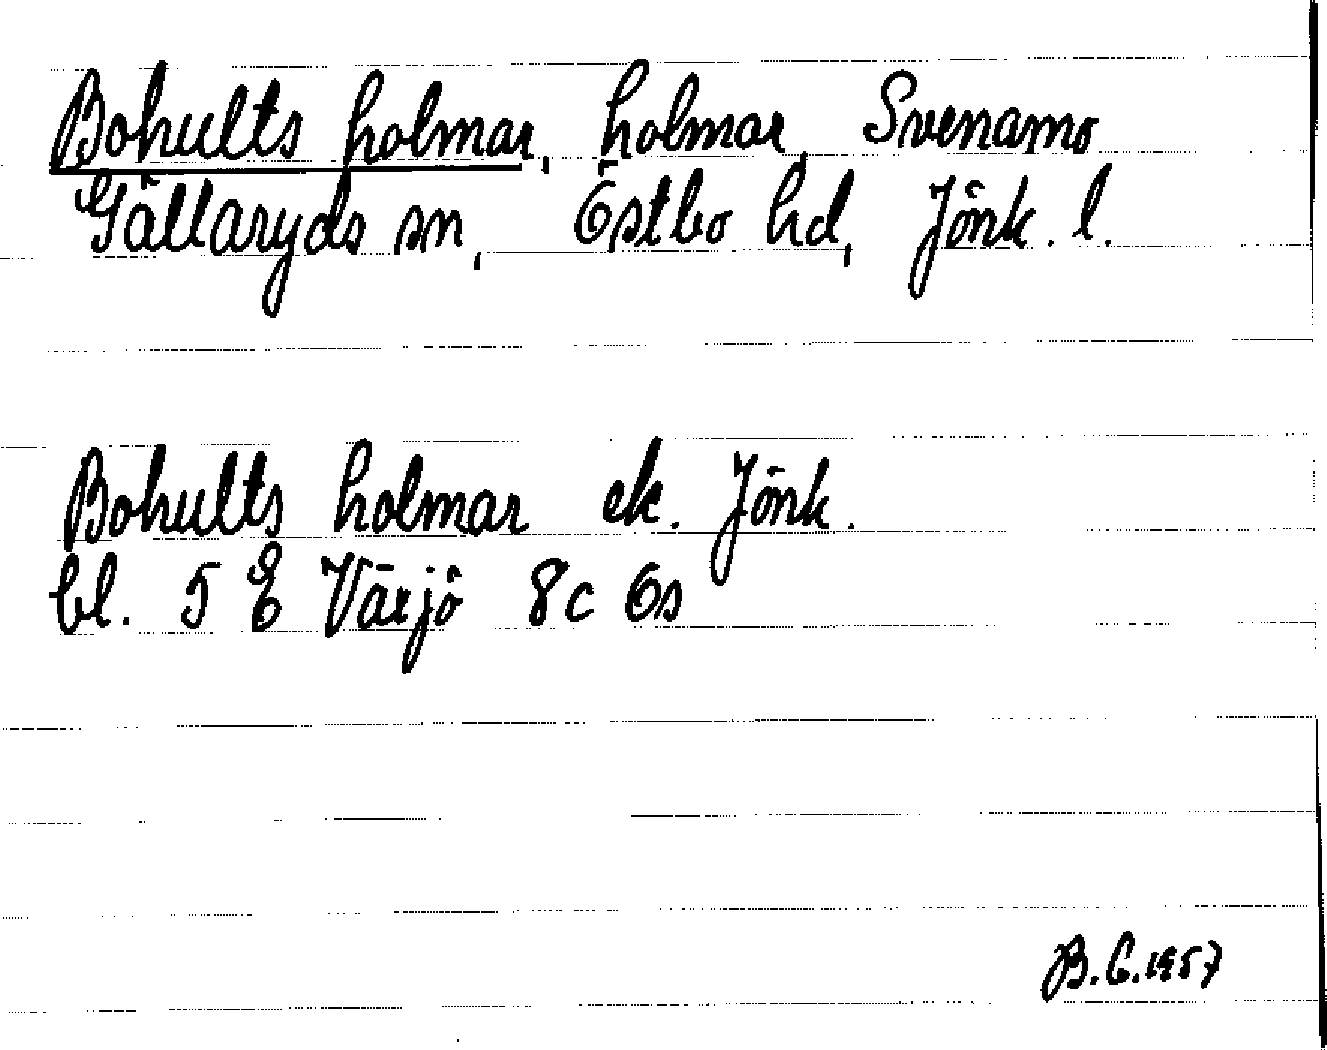 Bohults holmar, holmar, Svenamo
Gällaryds sn, Östbo hd, Jönk. l.
Bohults holmar ek. Jönk.
bl. 5 E Värjö 8c Ös
B.G.1957